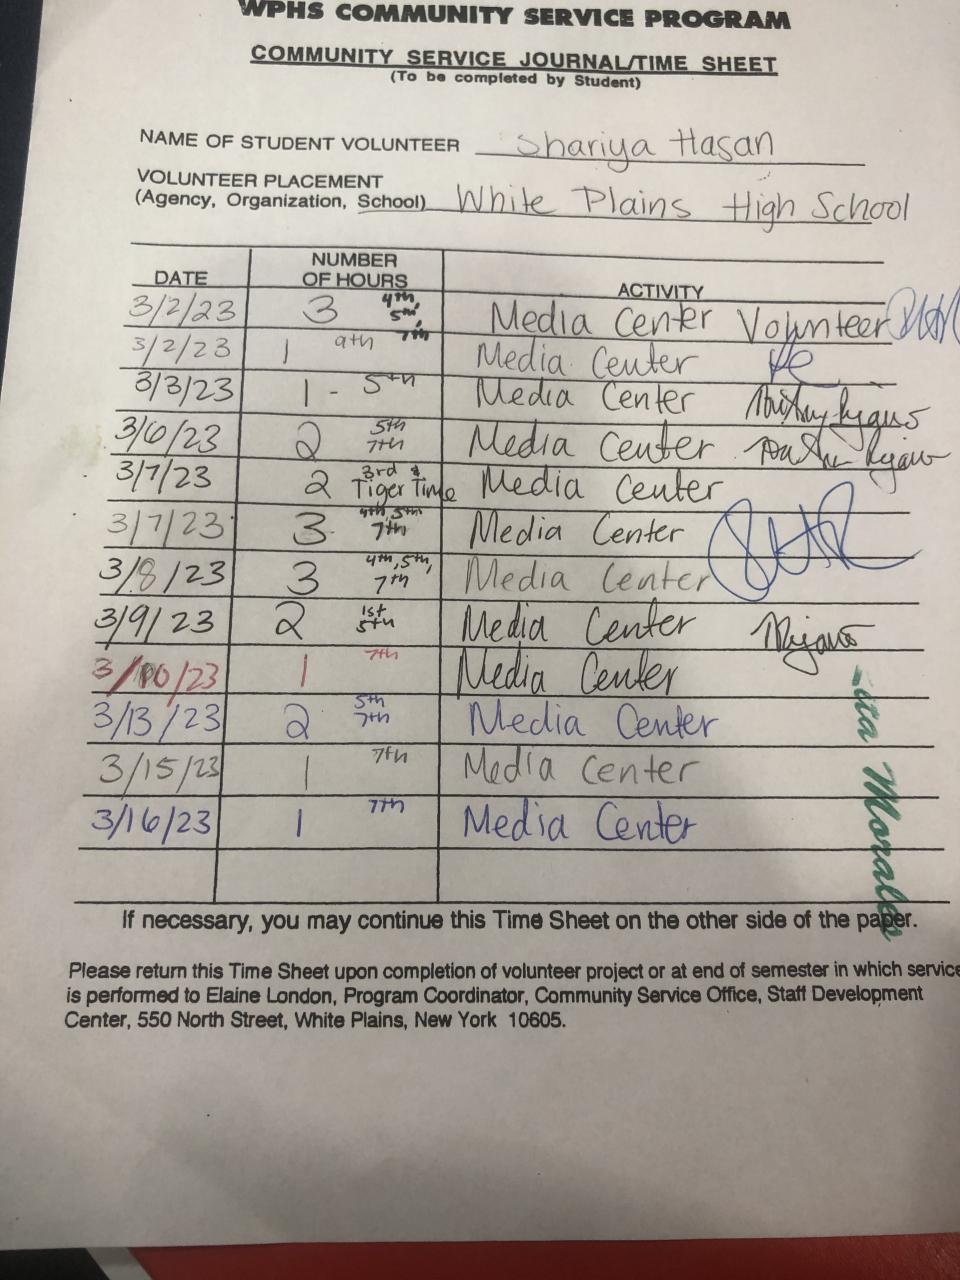 WPHS COMMUNITY SERVICE PROGRAM
COMMUNITY SERVICE JOURNAL/TIME SHEET
(To be completed by Student)
NAME OF STUDENT VOLUNTEER Shariya Hasan
VOLUNTEER PLACEMENT
(Agency, Organization, School) White Plains High School
DATE NUMBER OF HOURS ACTIVITY
3/2/23 3 4th, 5th, 7th Media Center Volunteer
3/2/23 1 9th Media Center
3/3/23 1 - 5th Media Center
3/6/23 2 5th 7th Media Center
3/7/23 2 3rd & Tiger Time Media Center
3/7/23 3 4th, 5th 7th Media Center
3/8/23 3 4th, 5th, 7th Media Center
3/9/23 2 1st 5th Media Center
3/10/23 1 7th Media Center
3/13/23 2 5th 7th Media Center
3/15/23 1 7th Media Center
3/16/23 1 7th Media Center
Morales
If necessary, you may continue this Time Sheet on the other side of the paper.
Please return this Time Sheet upon completion of volunteer project or at end of semester in which service
is performed to Elaine London, Program Coordinator, Community Service Office, Staff Development
Center, 550 North Street, White Plains, New York 10605.